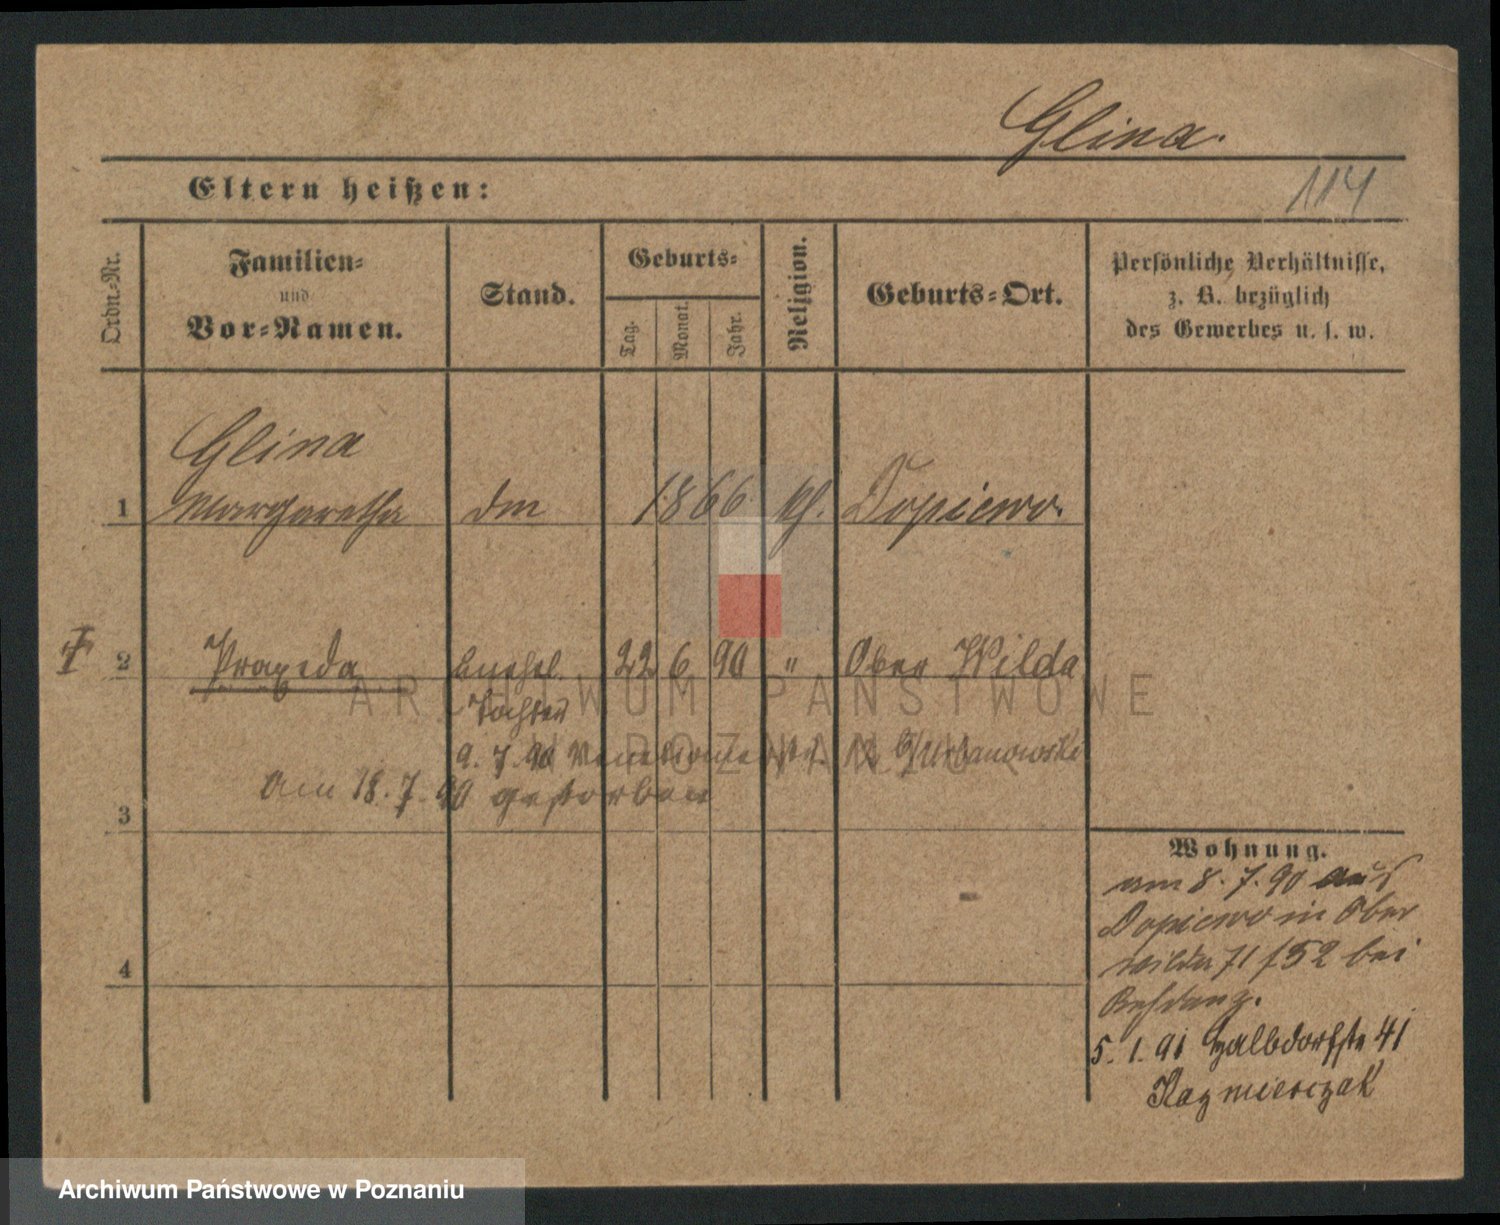 Glina.
Eltern heißen:
114
Ordn.-Nr.
Familien-
und
Vor-Namen.
Stand.
Geburts-
Tag.
Monat.
Jahr.
Religion.
Geburts-Ort.
Persönliche Verhältnisse,
z. B. bezüglich
des Gewerbes u. s. w.
Glina
1 Margaretha 1866 kth. Dopiewo.
2 Praxeda unehel. 22 6 90 " Ober Wilda
Tochter
9. 7. 90 Venetianerstr.
Am 18. 7. 90 gestorben
3
Wohnung.
am 8. 7. 90 aus
Dopiewo in Ober
Wilda 71/52 bei
4
5. 1. 91 Halbdorfstr 41
Kazmierczak
ARCHIWUM PAŃSTWOWE
W POZNANIU
Archiwum Państwowe w Poznaniu